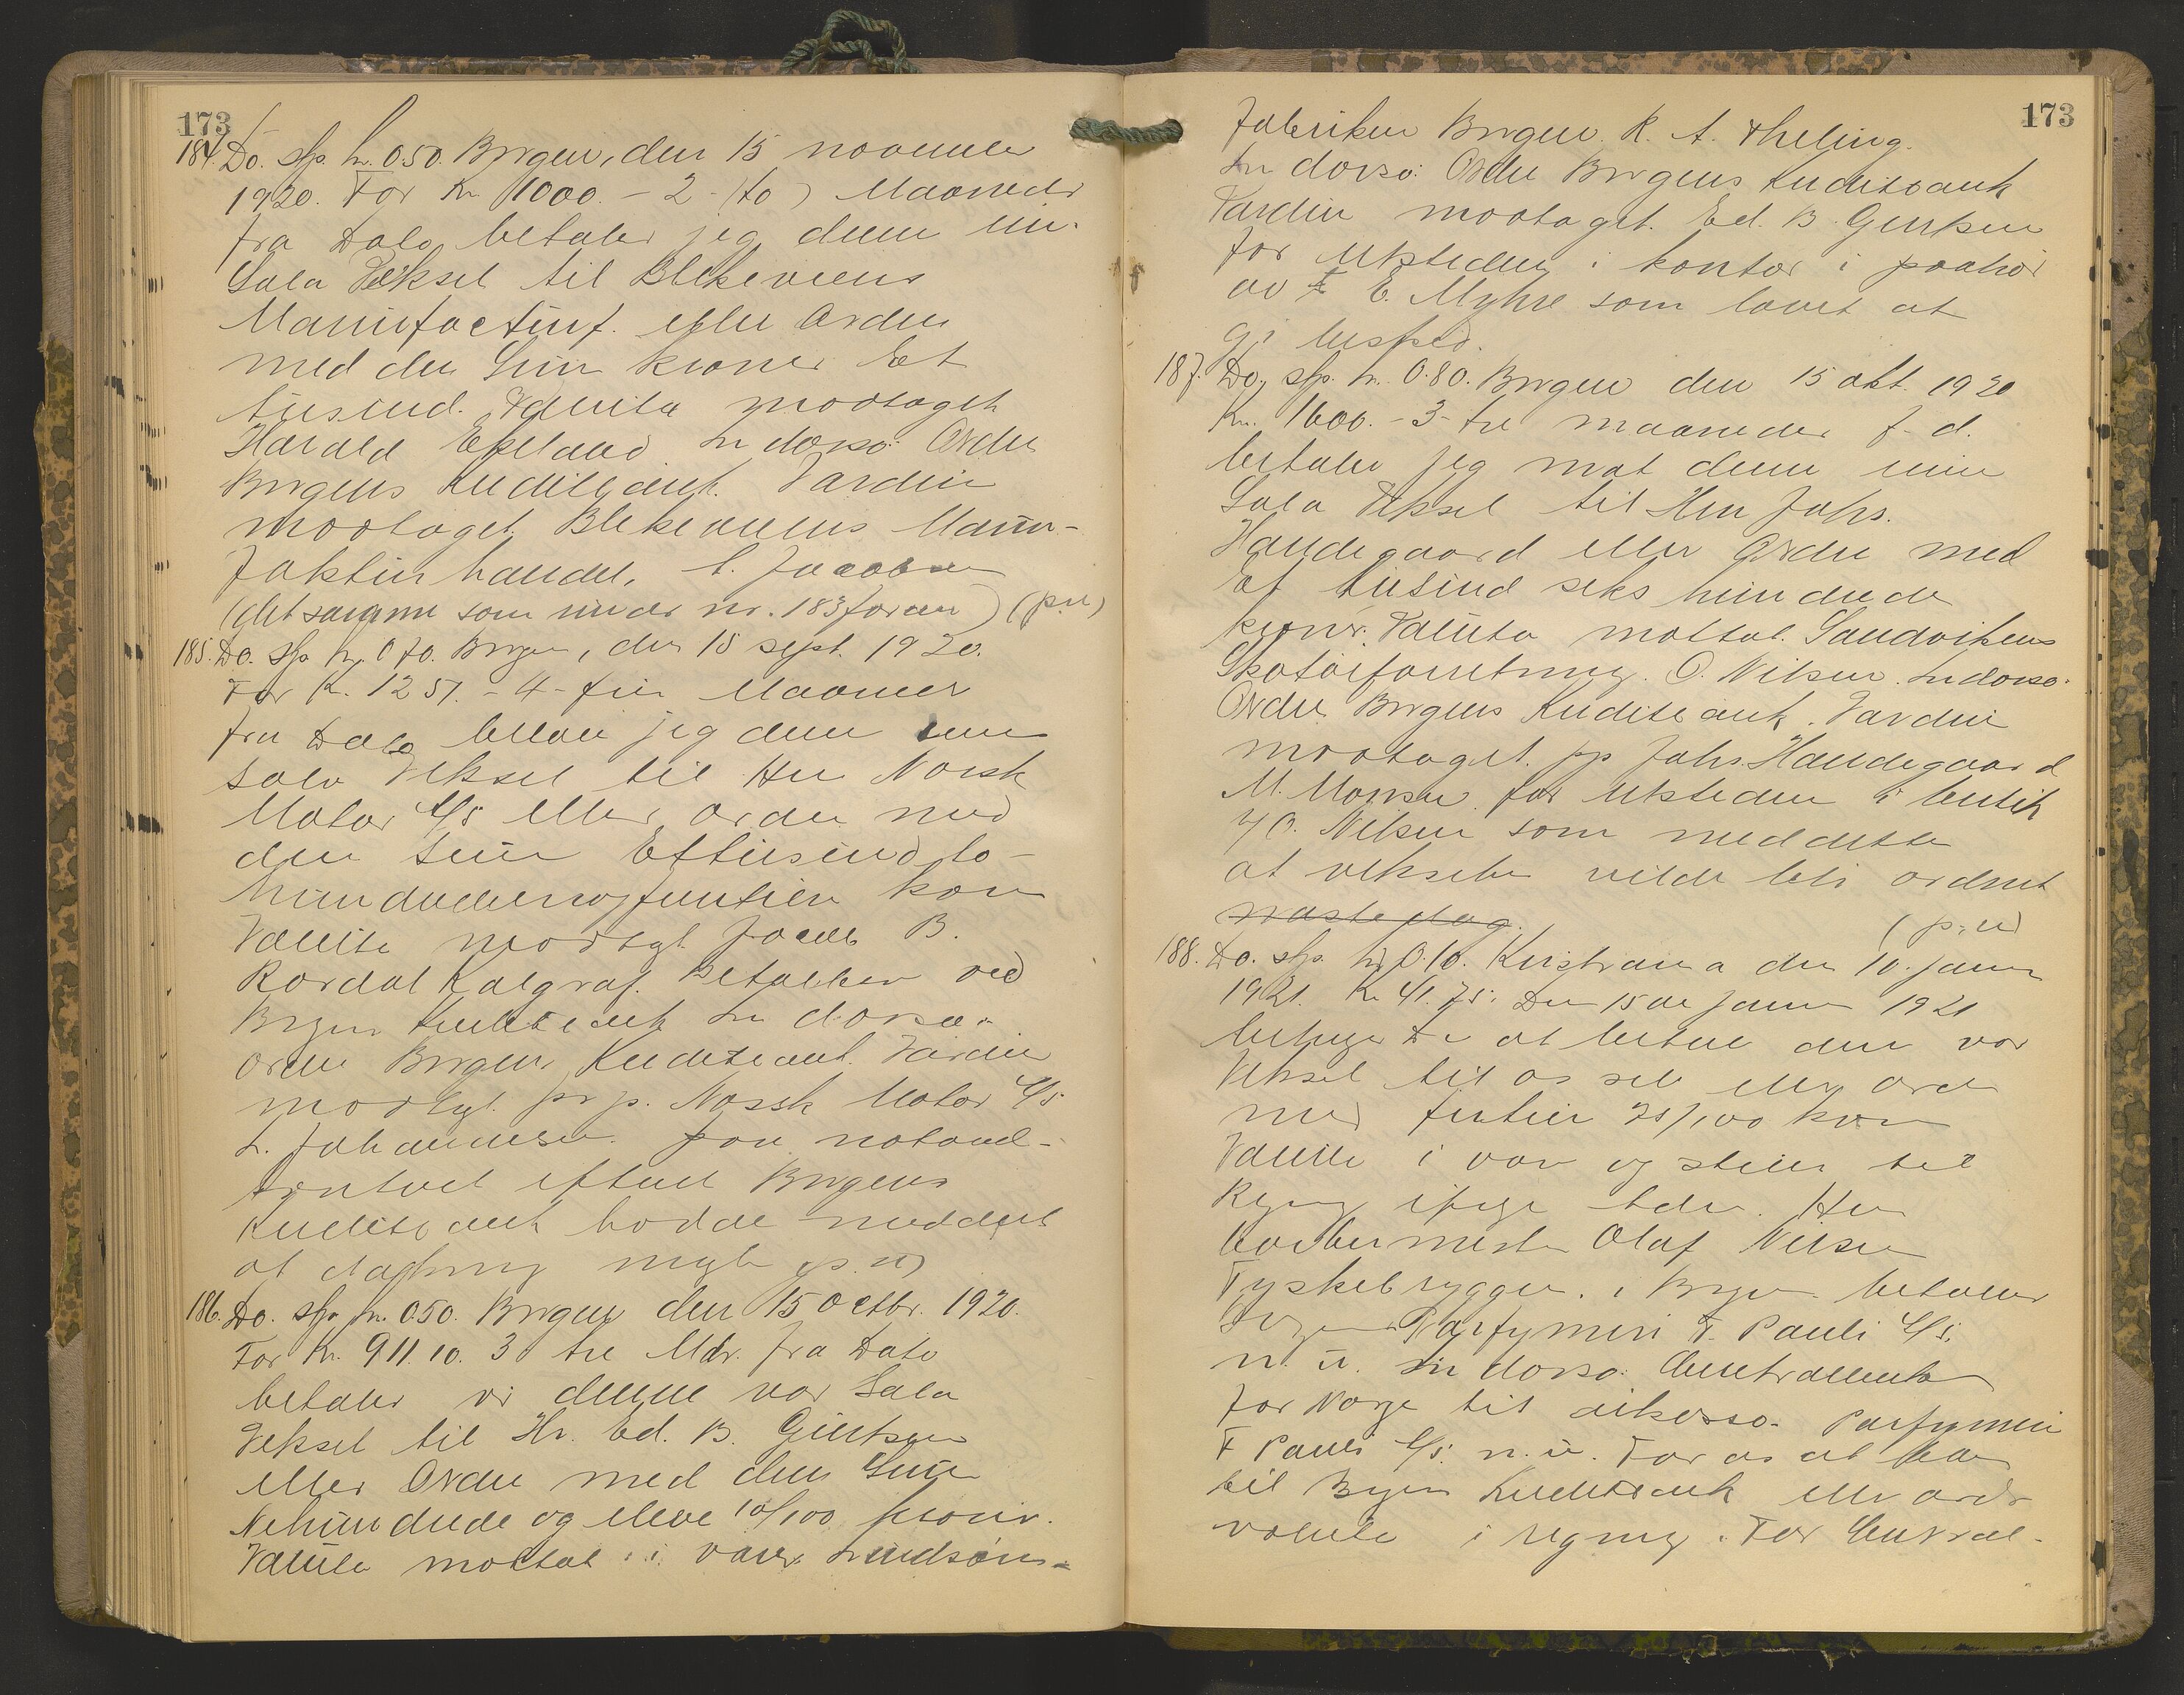 173
184. Do. slp. kr. 0.50. Bergen, den 15 november
1920. For Kr 1000. - 2 - (to) Maaneder
fra Dato betaler jeg denne min
Sola Veksel til Blekeveiens
Manufacturf. eller Ordre
med den Sum kroner Et
tusind. Valuta modtaget
Harald Espeland In dorso: Ordre
Bergens Kreditbank. Værdien
modtaget Blekeveiens Manu-
fakturhandel. Jacobsen
(det samme som under nr. 183 foran) (p.u)
185. Do. slp. kr. 0 70. Bergen, den 15 sept. 1920.
For K. 1251. - 4 - fire Maaneder
fra Dato betaler jeg denne min
sola Veksel til Herr Norsk
Motor A/S eller ordre med
den Sum Ettusindto-
hundredeenogfemti kroner
Valuta modtagt Jacob B.
Rordal Kalgraf. Betalbar ved
Bergens Kreditbank In dorso:
Ordre Bergens Kreditbank. Værdien
modtagt. pr p. Norsk Motor A/S
L. Johannesen. paa notarial-
kontoret eftersom Bergens
Kreditbank hadde meddelt
at dækning mgl. (p.u)
186. Do. slp. kr. 0.50. Bergen den 15 Octbr. 1920.
For Kr. 911.10. 3 tre Mdr. fra Dato
betaler vi denne vor Sola
Veksel til Hr. Ed. B. Giertsen
eller Ordre med den Sum
Nihundrede og elleve 10/100 kroner.
Valuta mottat i varer.
173
Fabriken Bergen. R. A. Theling.
In dorso: Ordre Bergens Kreditbank
Værdien modtaget. Ed. B. Giertsen
for utstederen i kontor i paahør
av E. Myhre som lovet at
gi besked.
187. Do. slp. kr. 0.80. Bergen den 15 okt. 1920
Kr. 1600. - 3 - tre maaneder f. d.
betaler jeg mot denne min
Sola Veksel til Herr Johs.
Haudegaard eller Ordre med
Et tusind seks hundrede
kroner. Valuta mottat. Sandvikens
Skotøiforretning. O. Nilsen. In dorso:
Ordre Bergens Kreditbank. Værdien
modtaget. pp Johs. Haudegaard
M. Monsen. for utstederen i butik
v/ O. Nilsen som meddelte
at vekselen vilde bli ordnet
næste dag. (p.u)
188. Do. slp. kr. 0.10. Kristiania den 10. januar
1921. Kr 41.75. Den 15de januar 1921
behager De at betale denne vor
Veksel til os selv eller ordre
med firtien 75/100 kroner
Valuta i varer og stilles til
Regning ifølge. Herr
barbermester Olaf Nilsen
Tyskebryggen. i Bergen. betales
Parfymeri F. Pauli A/S.
n. u. In dorso: Centralbanken
for Norge til inkasso. Parfymeri
F Pauli A/S. n. u. For os at betale
til Bergens Kreditbank eller ordre
valuta i regning. For Central-